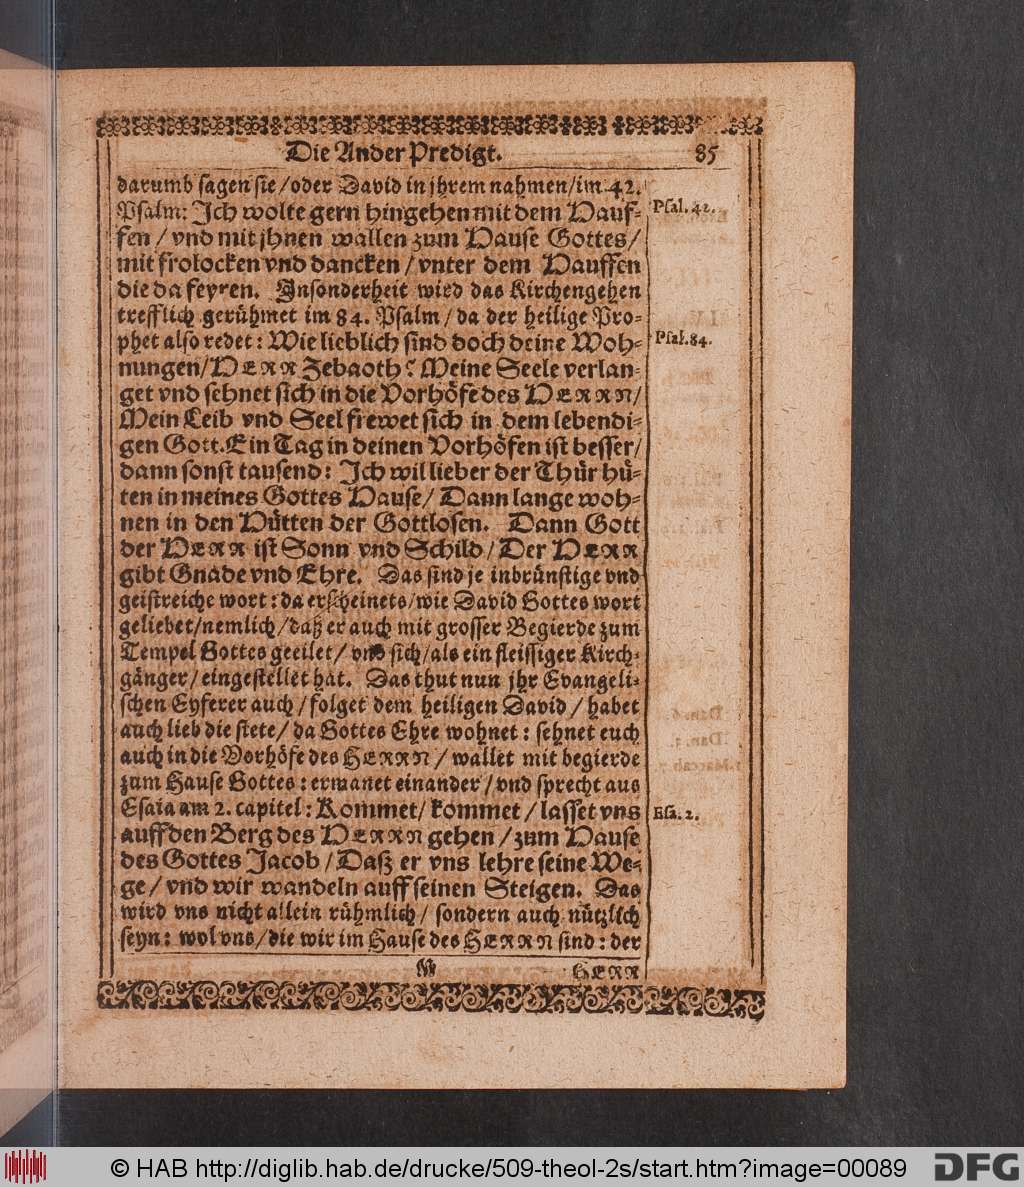 Die Ander Predigt. 85
darumb sagen sie/oder David in jhrem nahmen/im 42.
Psalm: Ich wolte gern hingehen mit dem Hauf-
fen / vnd mit jhnen wallen zum Hause Gottes/
mit frolocken vnd dancken / vnter dem Hauffen
die da feyren. Insonderheit wird das Kirchengehen
trefflich gerühmet im 84. Psalm / da der heilige Pro-
phet also redet: Wie lieblich sind doch deine Woh-
nungen/HERR Zebaoth? Meine Seele verlan-
get vnd sehnet sich in die Vorhöfe des HERRN/
Mein Leib vnd Seel frewet sich in dem lebendi-
gen Gott. Ein Tag in deinen Vorhöfen ist besser/
dann sonst tausend: Ich wil lieber der Thür hü-
ten in meines Gottes Hause/ Dann lange woh-
nen in den Hütten der Gottlosen. Dann Gott
der HERR ist Sonn vnd Schild/Der HERR
gibt Gnade vnd Ehre. Das sind je inbrünstige vnd
geistreiche wort: da erscheinets/wie David Gottes wort
geliebet/nemlich/daß er auch mit grosser Begierde zum
Tempel Gottes geeilet/ vnd sich/als ein fleissiger Kirch-
gänger/eingestellet hat. Das thut nun jhr Evangeli-
schen Eyferer auch/folget dem heiligen David / habet
auch lieb die stete/ da Gottes Ehre wohnet: sehnet euch
auch in die Vorhöfe des HERRN / wallet mit begierde
zum Hause Gottes: ermanet einander/vnd sprecht aus
Esaia am 2. capitel: Kommet/ kommet / lasset vns
auff den Berg des HERRN gehen / zum Hause
des Gottes Jacob/Daß er vns lehre seine We-
ge / vnd wir wandeln auff seinen Steigen. Das
wird vns nicht allein rühmlich/ sondern auch nützlich
seyn: wol vns/die wir im Hause des HERRN sind: der
M HERR
Psal. 42.
Psal. 84.
Esa. 2.
© HAB http://diglib.hab.de/drucke/509-theol-2s/start.htm?image=00089
DFG